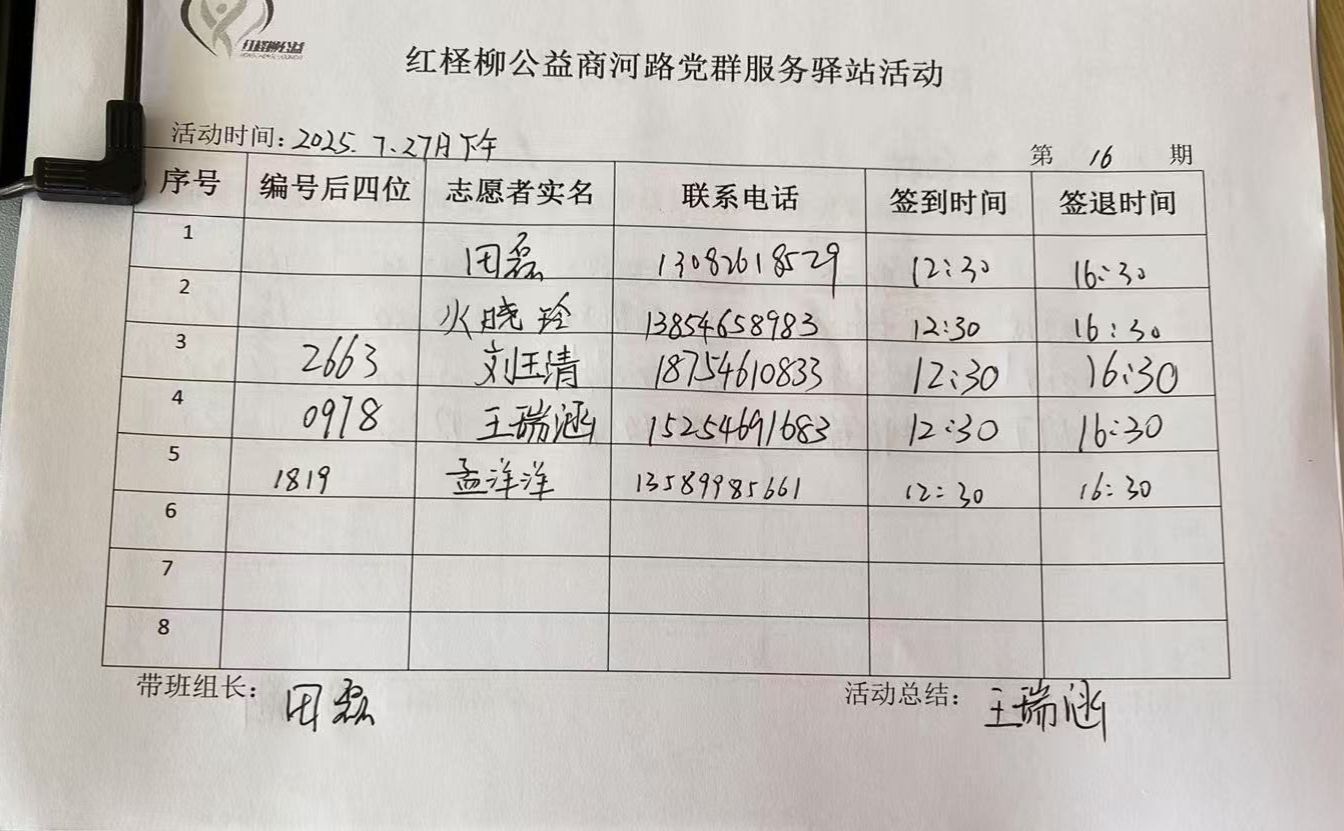 红柽柳公益
红柽柳公益商河路党群服务驿站活动
活动时间：2025.7.27月下午 第 16 期
序号 编号后四位 志愿者实名 联系电话 签到时间 签退时间
1 田磊 13082618529 12:30 16:30
2 火晓玲 13854658983 12:30 16:30
3 2663 刘玉清 18754610833 12:30 16:30
4 0978 王瑞涵 15254691683 12:30 16:30
5 1819 孟洋洋 13589985661 12:30 16:30
6
7
8
带班组长：田磊 活动总结：王瑞涵